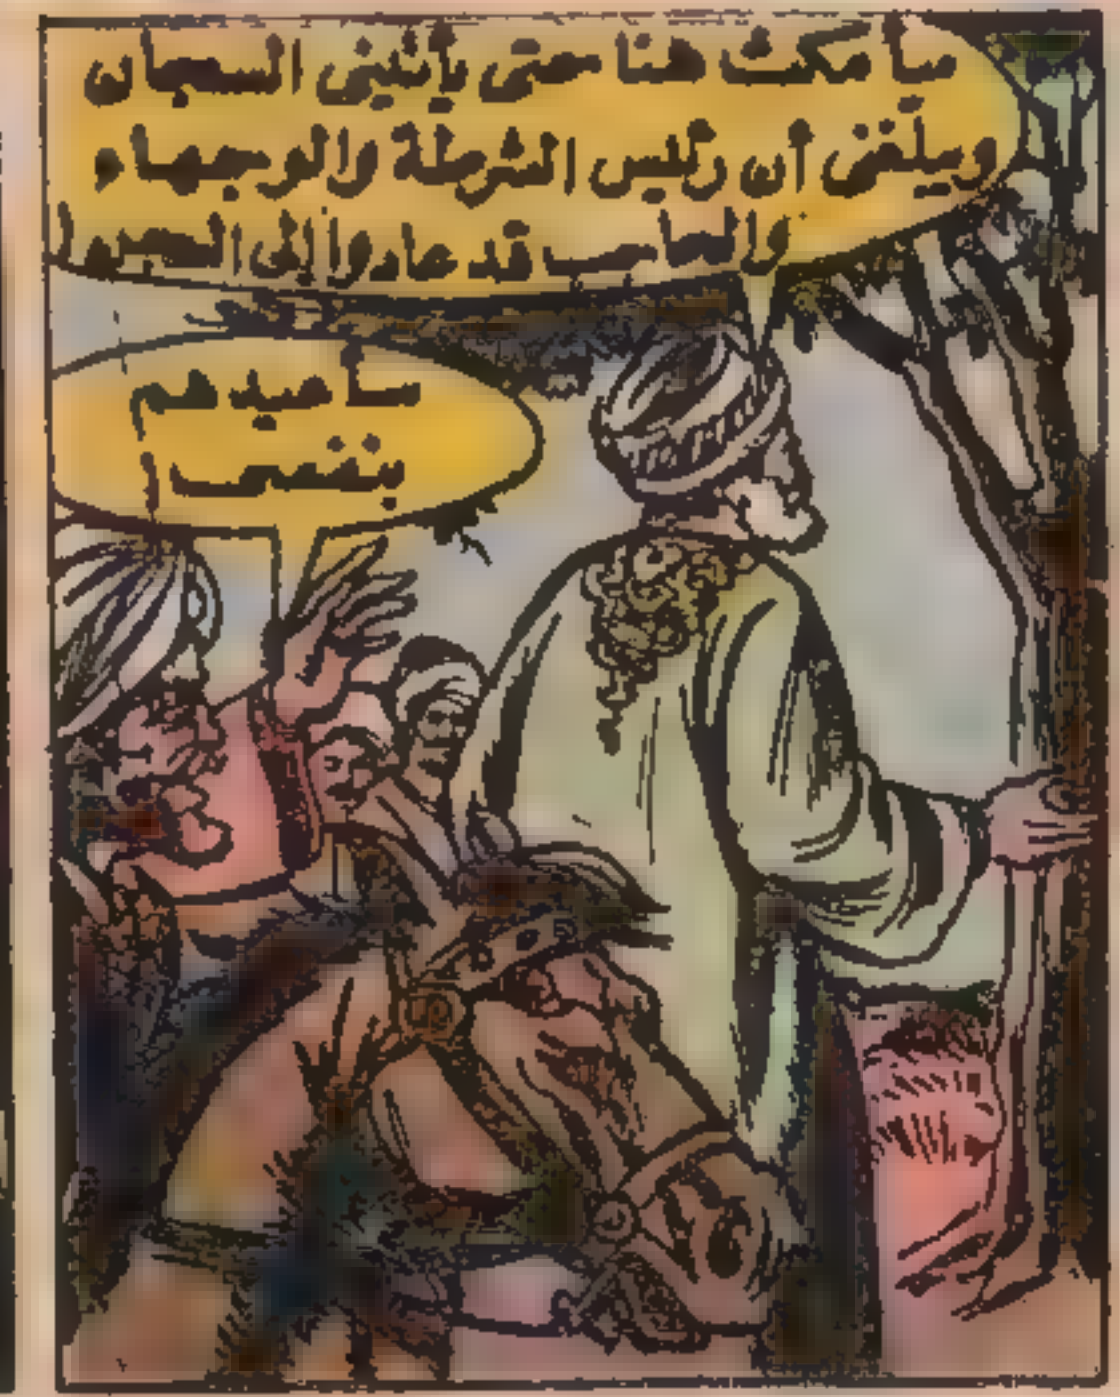 سأمكث هنا حتى يأتينى السجان
ويبلغنى أن رئيس الشرطة والوجهاء
قد عادوا إلى
سأعيدهم
بنفسى